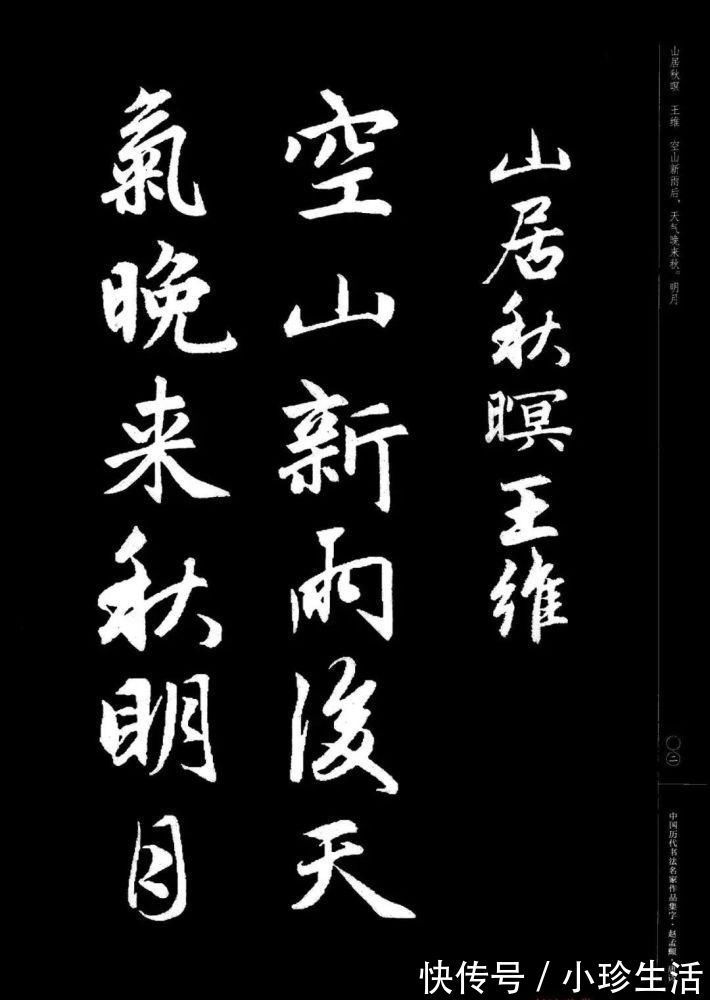 山居秋暝王维
空山新雨後天
氣晚来秋明月
山居秋暝 王维 空山新雨后，天气晚来秋。明月
〇二
中国历代书法名家作品集字·赵孟頫
快传号／小珍生活